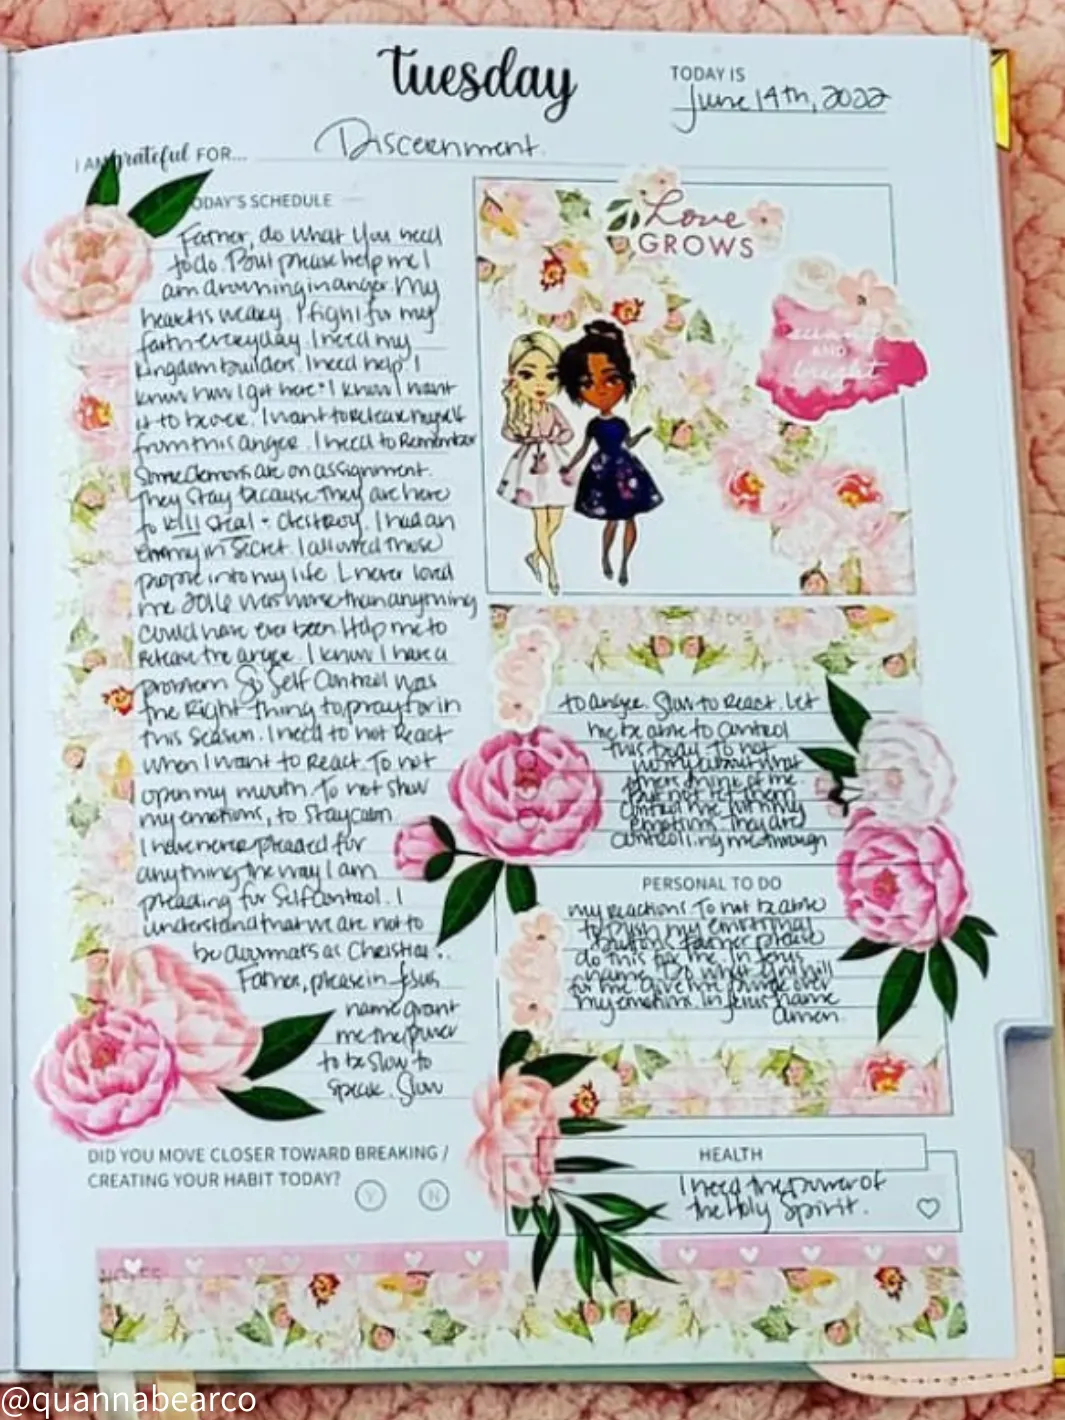 tuesday
TODAY IS
June 14th, 2022
I AM grateful FOR...
Discernment.
ODAY'S SCHEDULE
Father, do what You need
to do. But please help me I
am drowning in anger. My
heart is weary. I fight for my
faith everyday. I need my
kingdom builders. I need help. I
know how I got here. I know I want
it to be over. I want to release myself
from this anger. I need to Remember
Some demons are on assignment.
They stay because they are here
to kill steal + destroy. I had an
enemy in secret. I allowed those
people into my life I never loved
me 2016 was worse than anything
could have ever been Help me to
Release the anger. I know I have a
problem So Self Control was
the Right thing to pray for in
this season. I need to not React
when I want to React. To not
open my mouth. To not show
my emotions, to stay calm
I have never pleaded for
anything the way I am
pleading for Self Control. I
understand that we are not to
be doormats as Christian..
Father, please in Jesus
name grant
me the power
to be slow to
speak. Slow
Love
GROWS
AND
bright
to anger. Slow to React. Let
me be able to control
this body. To not
worry about what
others think of me
but not let them
control me with my
emotions. They are
controlling me through
PERSONAL TO DO
my reactions. To not be able
to push my emotional
buttons. Father please
do this for me. In Jesus
name. Do what I
for me. Give me power over
my emotion. In Jesus name
Amen.
DID YOU MOVE CLOSER TOWARD BREAKING /
CREATING YOUR HABIT TODAY?
Y N
HEALTH
I need the power of
the Holy Spirit.
NOTES
@quannabearco